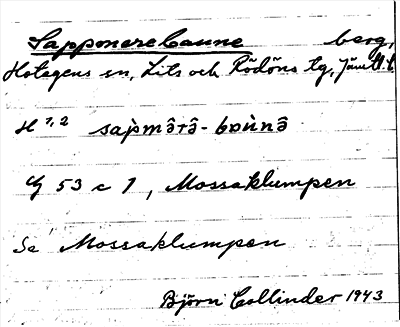 Sapponerebaune berg,
Hotagens sn, Lits och Rödöns tg, Jämtl. l.
H 1,2 sap̀mə̂rə̂-bɒùnə̂
G 53 c 1, Mossaklumpen
Se Mossaklumpen
Björn Collinder 1943